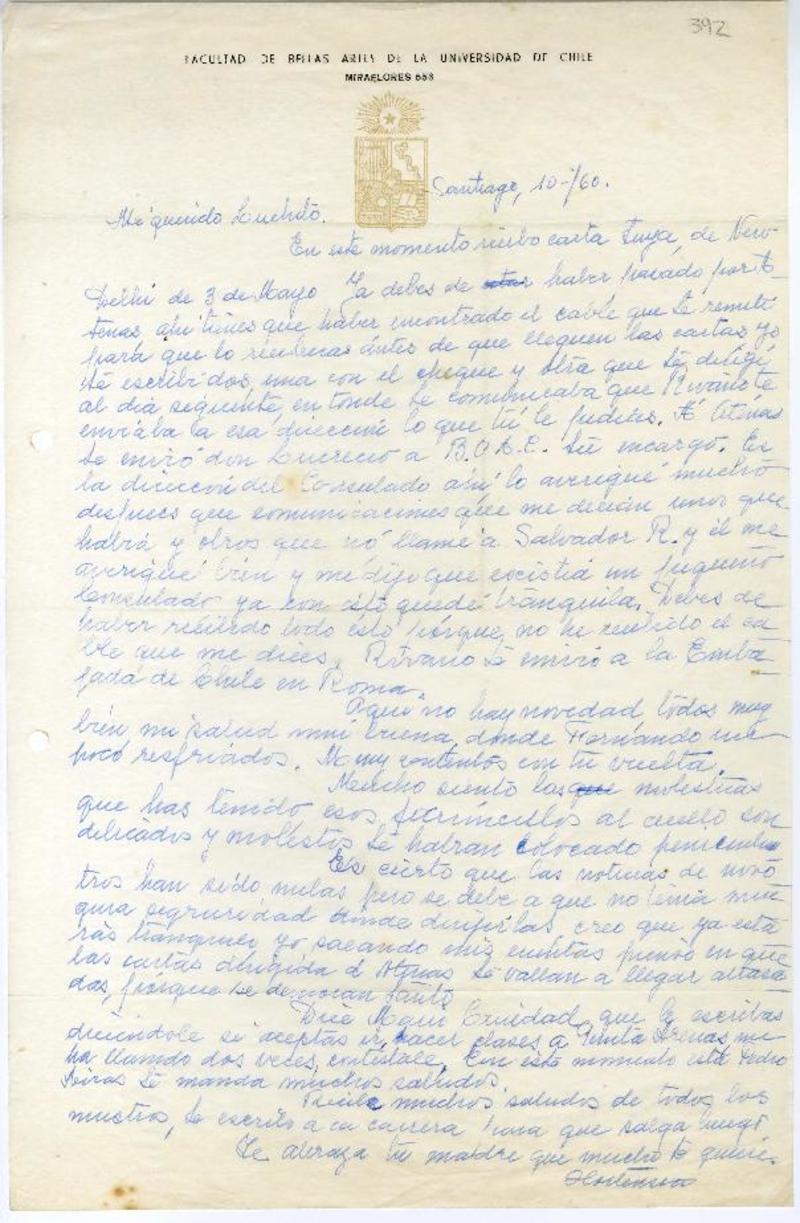 392
FACULTAD DE BELLAS ARTES DE LA UNIVERSIDAD DE CHILE
MIRAFLORES 658
Santiago, 10-/60.
Mi querido Luchito.
En este momento recibo carta tuya, de New-
Delhi de 3 de Mayo Ya debes de haber pasado por A-
tenas ahi tienes que haber encontrado el cable que te remiti
para que lo recibieras ántes de que lleguen las cartas yo
te escribi dos, una con el cheque y otra que te dirigí
al dia siguiente, en donde te comunicaba que Rivano te
enviába a esa dirección lo que tú le pedias. A Atenas
te envió don Lucrecio a B.O.A.C. tu encargo. En
la dirección del Consulado ahi lo averigué mucho
despues que comunicaciones que me decian unos que
habia y otros que no llame a Salvador R. y él me
averigué bién y me dijo que existia un pequeño
Consulado ya con ésto quedé tranquila. Debes de
haber recibido todo ésto porque no he recibido el ca-
ble que me dices. Rivano te envió a la Emba-
jada de Chile en Roma.
Aqui no hay novedad, todos muy
bién mi salud muy buena, donde Fernando un
poco resfriados. Muy contentos con tu vuelta.
Mucho siento las molestias
que has tenido esos furúnculos al cuello son
delicados y molestos te habran colocado penicilina
Es cierto que las noticias de noso-
tros han sido nulas pero se debe a que no tenia nin-
guna seguridad donde dirijirlas, creo que ya esta-
rás tranquilo yo sacando mis cuentas pienso en que
las cartas dirigida a Atenas te vallan a llegar atrasa-
das, porque se demoran tanto
Dice que le escribas
diciéndole si aceptas ir hacer clases a Punta Arenas, me
ha llamado dos veces, contéstale. En este momento está Pedro
te manda muchos saludos.
Recibe muchos saludos de todos los
nuestros, te escribo a la carrera para que salga luego
Te abraza tu madre que mucho te quiere.
Hortensia